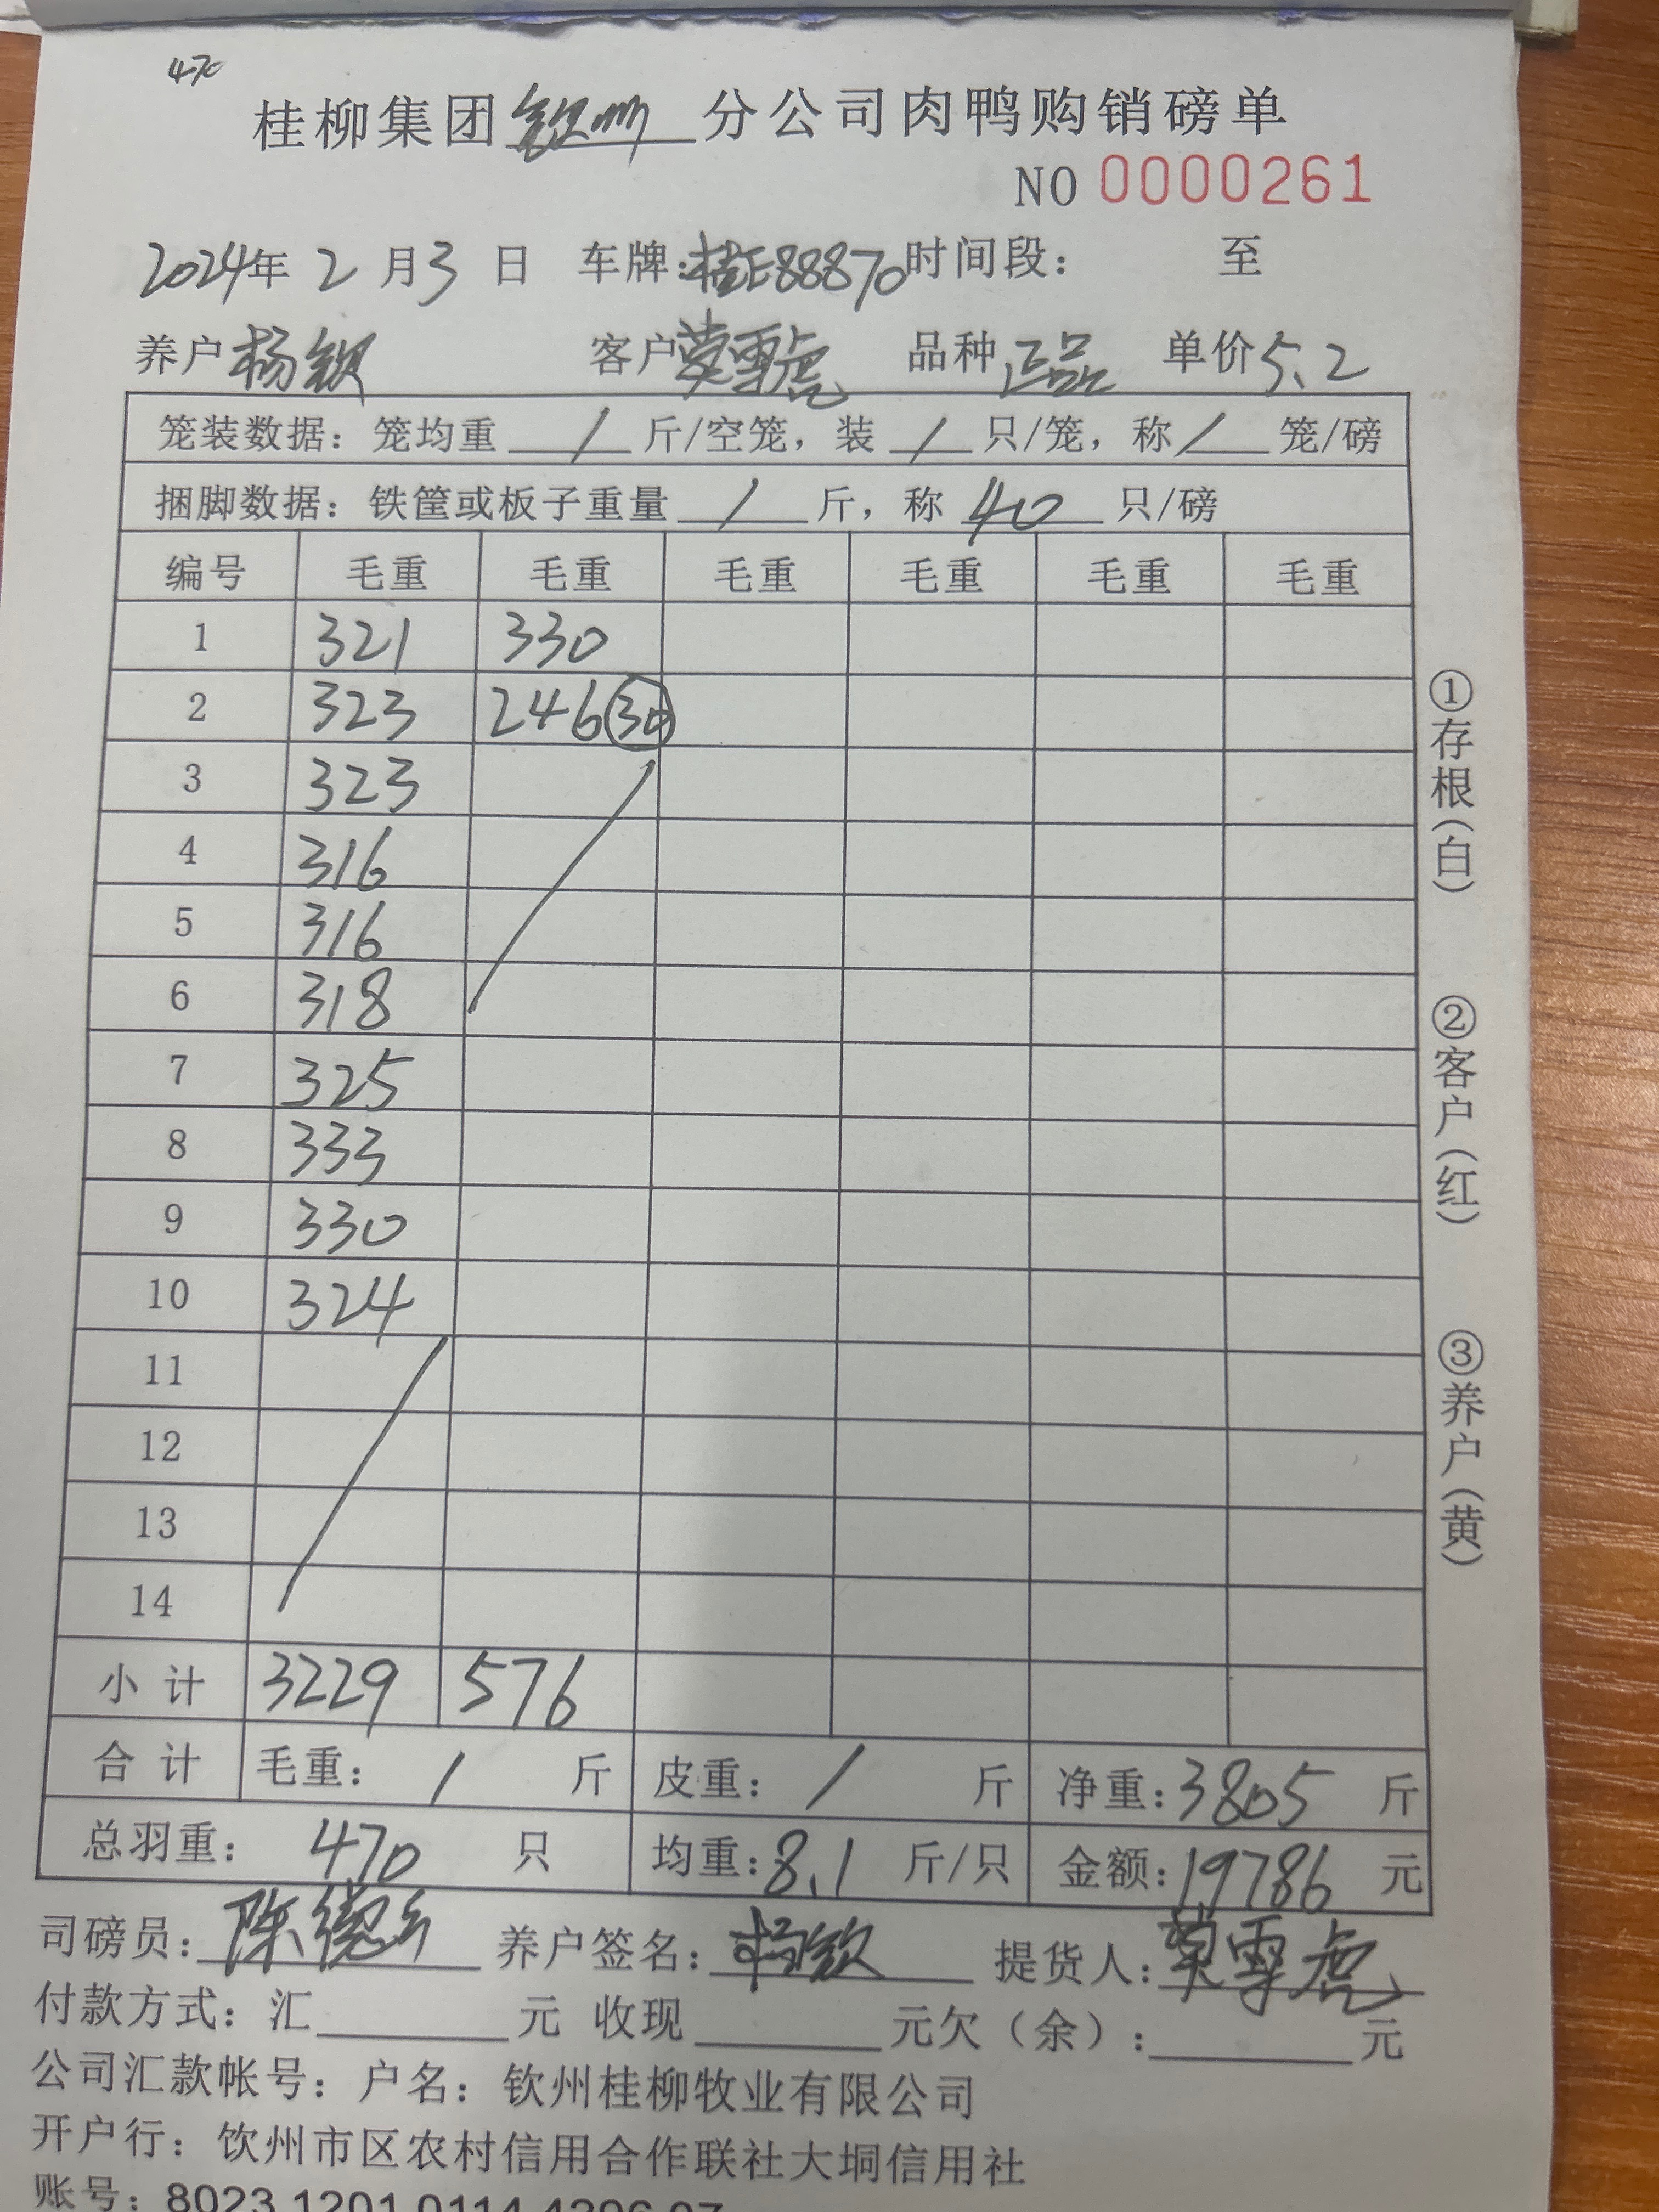 470
桂柳集团钦州分公司肉鸭购销磅单
NO 0000261
2024年 2 月 3 日 车牌:桂E88870 时间段: 至
养户 杨钦 客户 莫雪虎 品种 正品 单价 5.2
笼装数据: 笼均重 / 斤/空笼, 装 / 只/笼, 称 / 笼/磅
捆脚数据: 铁筐或板子重量 / 斤, 称 40 只/磅
编号 毛重 毛重 毛重 毛重 毛重 毛重
1 321 330
2 323 246 30
3 323
4 316
5 316
6 318
7 325
8 333
9 330
10 324
11
12
13
14
小计 3229 576
合计 毛重: / 斤 皮重: / 斤 净重: 3805 斤
总羽重: 470 只 均重: 8.1 斤/只 金额: 19786 元
司磅员: 陈 养户签名: 杨钦 提货人: 莫雪虎
付款方式: 汇 元 收现 元欠(余): 元
公司汇款帐号: 户名: 钦州桂柳牧业有限公司
开户行: 钦州市区农村信用合作联社大垌信用社
账号: 8023 1201 0114 4296 07
①存根(白)
②客户(红)
③养户(黄)